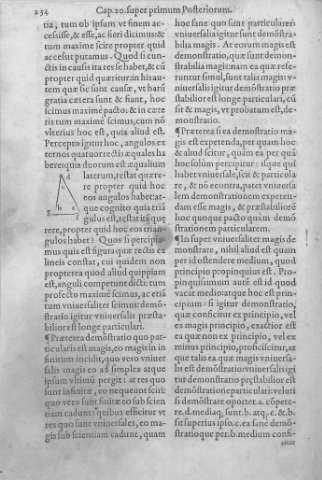 254 Cap. 20. super primum Posteriorum.
tia, tum ob ipsum vt finem ac-
cesisse, & esse, ac fieri dicimus: &
tum maxime scire propter quid
accessit putamus. Quod si cun-
ctis in causis ita res se habet, & cũ
propter quid quæritur in his au-
tem quæ sic sunt causæ, vt harũ
gratia cætera sunt & fiant, hoc
scimus maxime pacto: & in cæte
ris tum maxime scimus, cum nõ
vlterius hoc est, quia aliud est.
Percepto igitur hoc, angulos ex
ternos quatuor rectis æquales ha
bere quia duorum est æqualium
laterum, restat quære-
re propter quid hoc
eos angulos habeat: at-
que cognito quia triã
gulus est, restat itaque
rere, propter quid hoc eos trian
gulos habet? Quos si percipia-
mus quia est figura quæ rectis ex
lineis constat, cui quidem non
propterea quod aliud quippiam
est, anguli competunt dicti: tum
profecto maxime scimus, ac etiã
tum vniuersaliter scimus: demõ-
stratio igitur vniuersalis præsta-
bilior est longe particulari.
¶Præterea demõstratio quo par-
ticularis est magis, eo magis in in
finitum incidit, quo vero vniuer
salis magis eo ad simplex atque
ipsum vltimũ pergit: at res quo
sunt infinitæ, eo nequeunt sciri:
quo vero sunt finitæ eo sub scien
tiam cadunt: quibus efficitur vt
res quo sunt vniuersales, eo ma-
gis sub scientiam cadant, quam
hoc sane quo sunt particulares:
vniuersalia igitur sunt demonstra-
bilia magis. At eorum magis est
demonstratio, quæ sunt demon-
strabilia magis: nam ea quæ refe-
runtur simul, sunt talia magis: v-
niuersalis igitur demonstratio præ
stabilior est longe particulari, cũ
sit & magis, vt probatum est, de-
monstratio.
¶Præterea si ea demõstratio ma-
gis est expetenda, per quam hoc
& aliud scitur, quàm ea per quã
hoc solùm percipitur: isque qui
habet vniuersale, scit & particula
re, & nõ econtra, patet vniuersa
lem demonstrationem expeten-
dam esse magis, & præstabiliorẽ
hoc quoque pacto quàm demõ
strationem particularem.
¶Insuper vniuersaliter magis de
monstrare, nihil aliud est quàm
per id ostendere medium, quod
principio propinquius est. Pro-
pinquissimum autẽ est id quod
vacat medio: atque hoc est prin-
cipium: si igitur demonstratio,
quæ conficitur ex principio, vel
ex magis principio, exactior est
ea quæ non ex principio, vel ex
minus principio, proficiscitur, at
que talis ea quæ magis vniuersa-
lis est demõstratio: vniuersalis igi
tur demonstratio præstabilior est
demõstratione particulari: veluti
si demõstrare oportet .a. cõpete-
re .d. mediaq; sunt .b. atq; .c. & .b.
sit superius ipso .c. ea sane demõ-
stratio quæ per .b. medium confi-